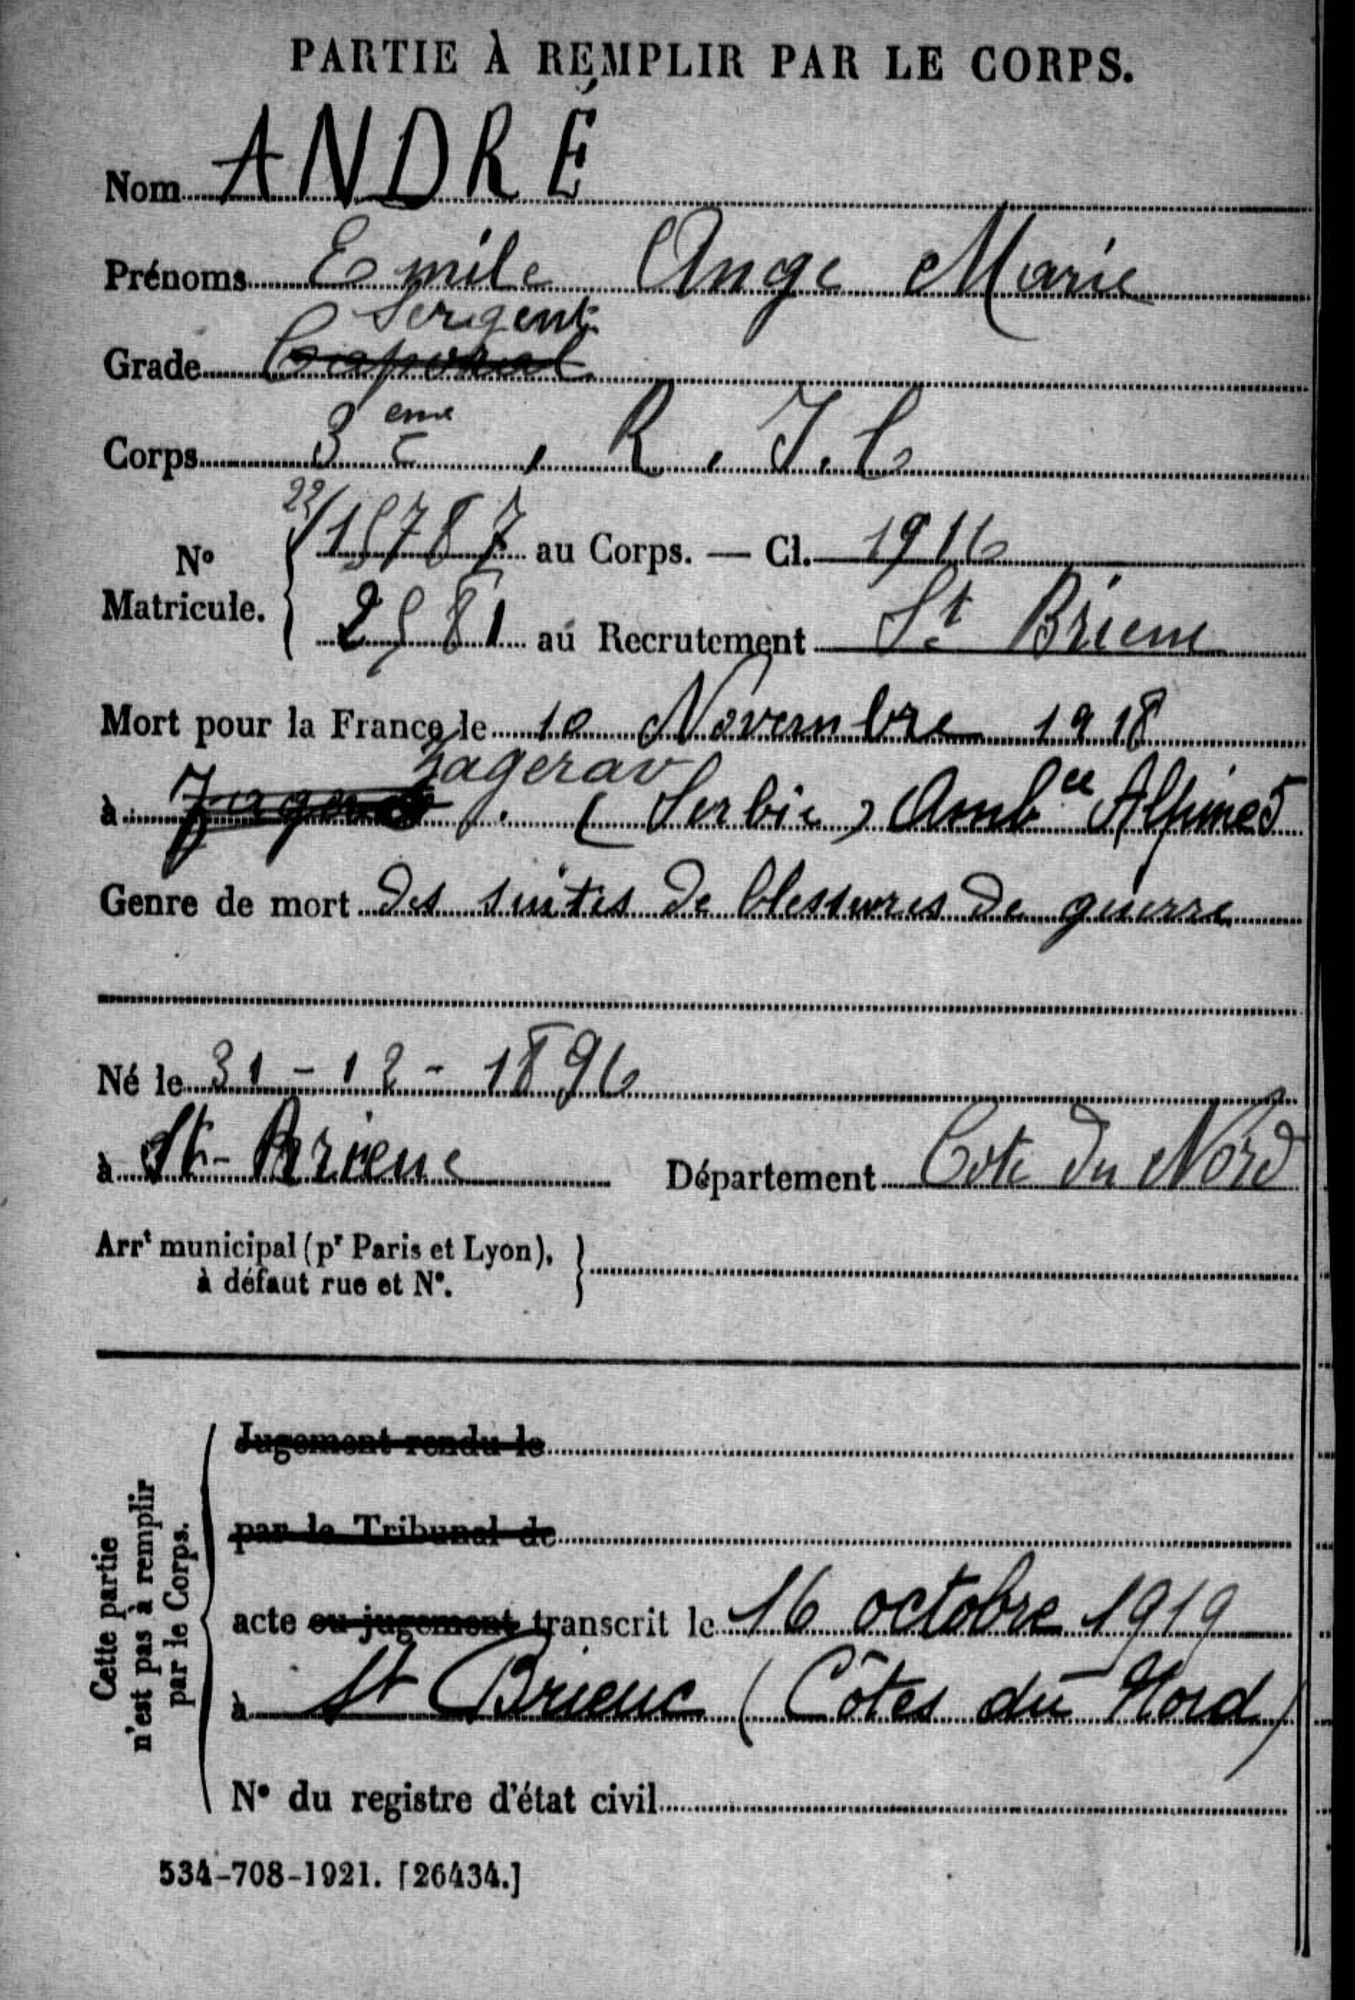 PARTIE À REMPLIR PAR LE CORPS.
Nom ANDRÉ
Prénoms Emile Ange Marie
Sergent
Grade Caporal
Corps 3 ème R. I. C
22/15787 au Corps. — Cl. 1916
N° Matricule.
2581 au Recrutement St Brieuc
Mort pour la France le 10 Novembre 1918
Zagerav
à (Serbie) Ambce Alpine 5
Genre de mort des suites de blessures de guerre
Né le 31-12-1896
à St-Brieuc Département Cote du Nord
Arrt municipal (pr Paris et Lyon),
à défaut rue et N°.
Cette partie
n'est pas à remplir
par le Corps.
Jugement rendu le
par le Tribunal de
acte ou jugement transcrit le 16 octobre 1919
à St Brieuc (Côtes du Nord)
N° du registre d'état civil
534-708-1921. [26434.]